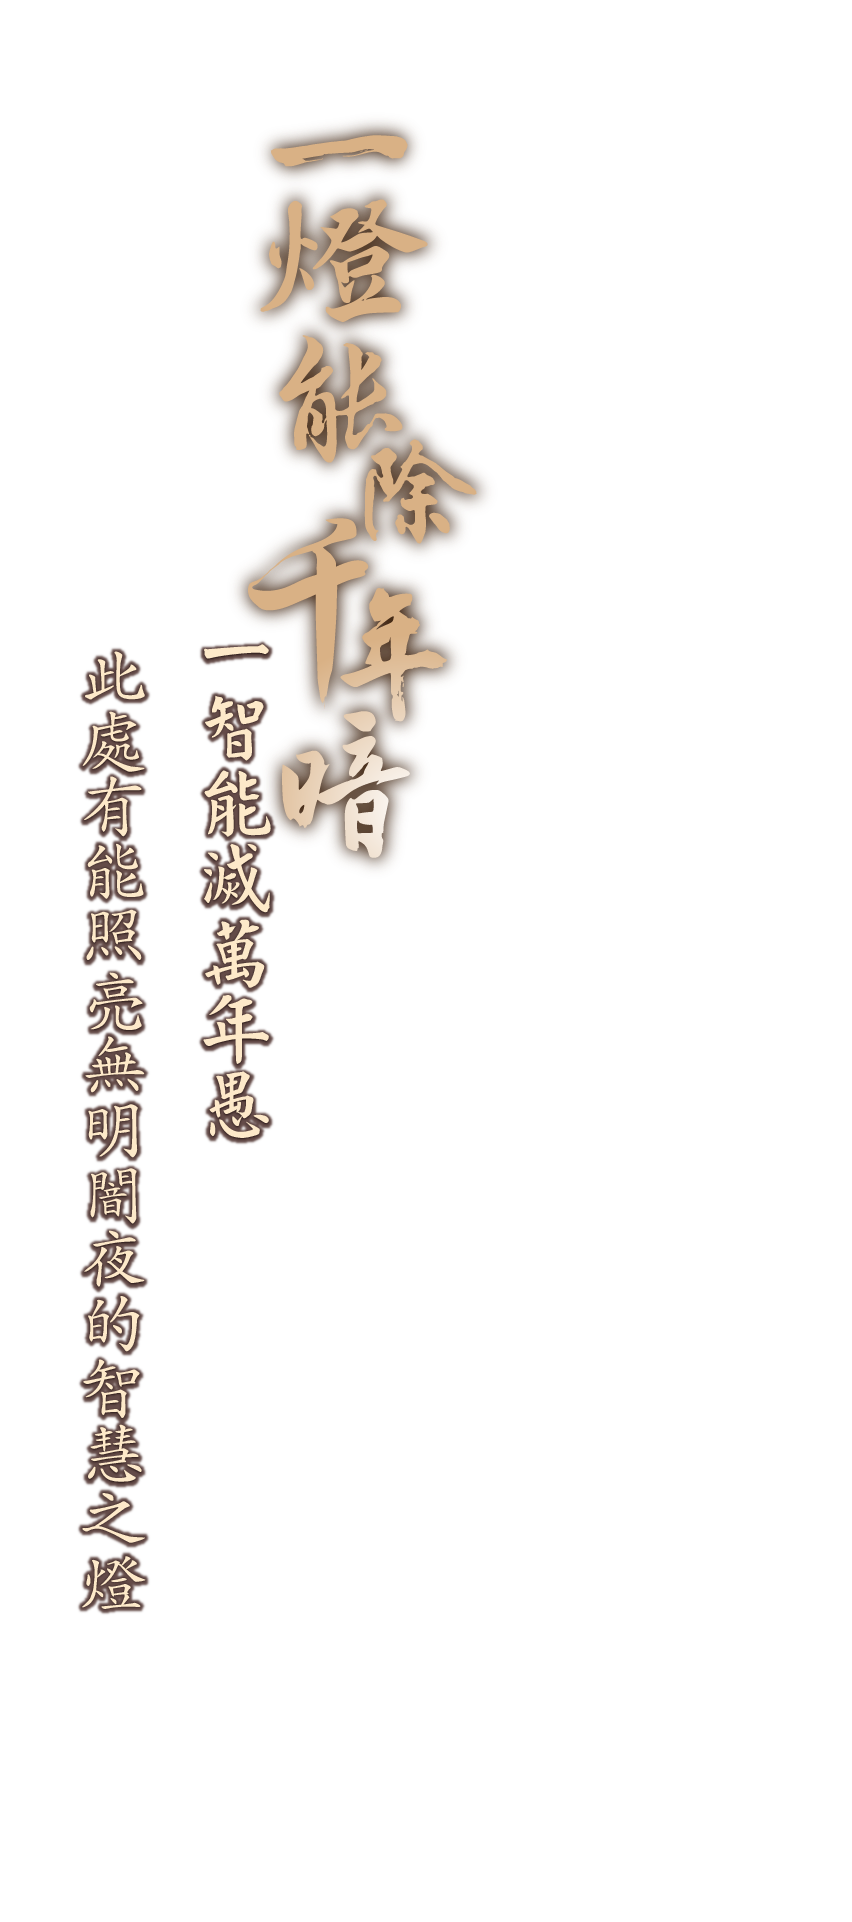 一燈能除千年暗
一智能滅萬年愚
此處有能照亮無明闇夜的智慧之燈